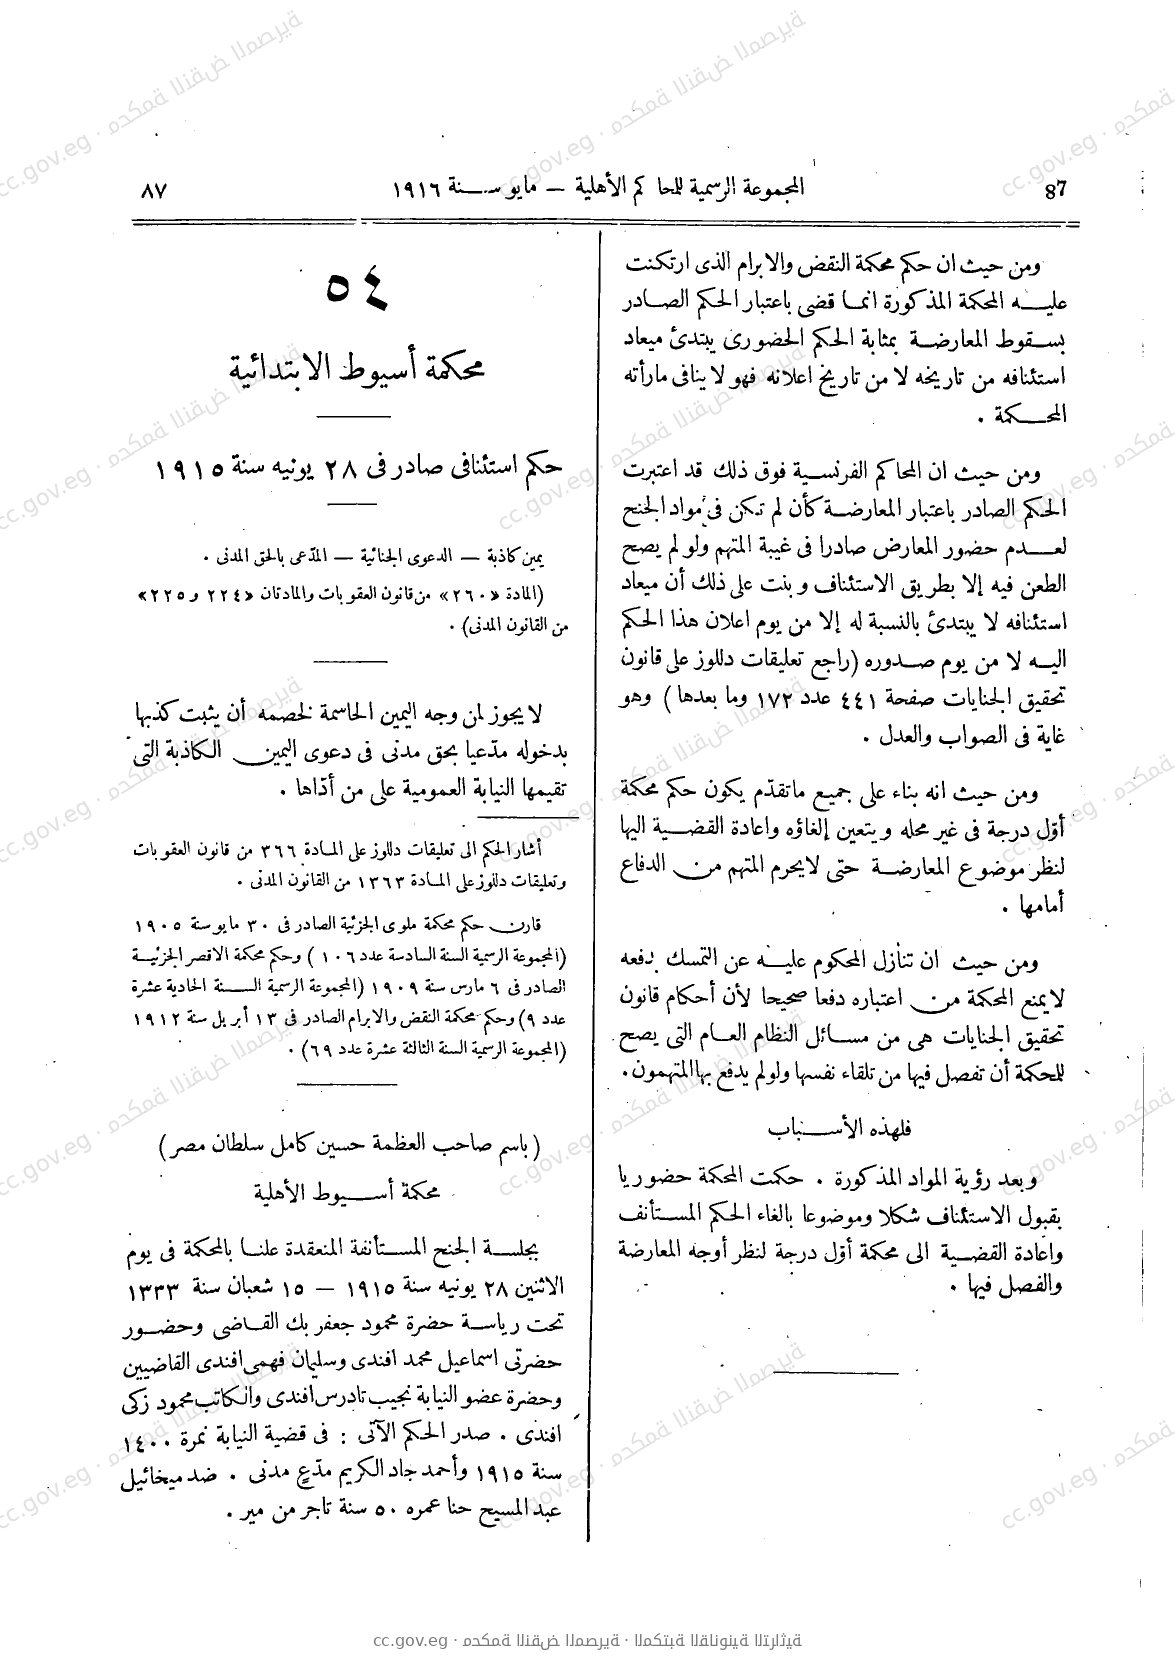 87
المجموعة الرسمية للمحاكم الأهلية — مايو سنة ١٩١٦
٨٧
ومن حيث ان حكم محكمة النقض والابرام الذى ارتكنت
عليه المحكمة المذكورة انما قضى باعتبار الحكم الصادر
بسقوط المعارضة بمثابة الحكم الحضورى يبتدئ ميعاد
استئنافه من تاريخه لا من تاريخ اعلانه فهو لا ينافى مارأته
المحكمة .
ومن حيث ان المحاكم الفرنسية فوق ذلك قد اعتبرت
الحكم الصادر باعتبار المعارضة كأن لم تكن فى مواد الجنح
لعدم حضور المعارض صادرا فى غيبة المتهم ولو لم يصح
الطعن فيه إلا بطريق الاستئناف وبنت على ذلك أن ميعاد
استئنافه لا يبتدئ بالنسبة له إلا من يوم اعلان هذا الحكم
اليه لا من يوم صدوره (راجع تعليقات دللوز على قانون
تحقيق الجنايات صفحة ٤٤١ عدد ١٧٢ وما بعدها) وهو
غاية فى الصواب والعدل .
ومن حيث انه بناء على جميع ماتقدّم يكون حكم محكمة
أوّل درجة فى غير محله ويتعين إلغاؤه واعادة القضية اليها
لنظر موضوع المعارضة حتى لايحرم المتهم من الدفاع
أمامها .
ومن حيث ان تنازل المحكوم عليه عن التمسك بدفعه
لايمنع المحكمة من اعتباره دفعا صحيحا لأن أحكام قانون
تحقيق الجنايات هى من مسائل النظام العام التى يصح
للمحكمة أن تفصل فيها من تلقاء نفسها ولولم يدفع بها المتهمون.
فلهذه الأسباب
وبعد رؤية المواد المذكورة . حكمت المحكمة حضوريا
بقبول الاستئناف شكلا وموضوعا بالغاء الحكم المستأنف
واعادة القضية الى محكمة أوّل درجة لنظر أوجه المعارضة
والفصل فيها .
٥٤
محكمة أسيوط الابتدائية
حكم استئنافى صادر فى ٢٨ يونيه سنة ١٩١٥
يمين كاذبة — الدعوى الجنائية — المدّعى بالحق المدنى .
(المادة «٢٦٠» من قانون العقوبات والمادتان «٢٢٤ و٢٢٥»
من القانون المدنى) .
لا يجوز لمن وجه اليمين الحاسمة لخصمه أن يثبت كذبها
بدخوله مدّعيا بحق مدنى فى دعوى اليمين الكاذبة التى
تقيمها النيابة العمومية على من أدّاها .
أشار الحكم الى تعليقات دللوز على المادة ٣٦٦ من قانون العقوبات
وتعليقات دللوز على المادة ١٣٦٣ من القانون المدنى .
قارن حكم محكمة ملوى الجزئية الصادر فى ٣٠ مايو سنة ١٩٠٥
(المجموعة الرسمية السنة السادسة عدد ١٠٦) وحكم محكمة الاقصر الجزئية
الصادر فى ٦ مارس سنة ١٩٠٩ (المجموعة الرسمية السنة الحادية عشرة
عدد ٩) وحكم محكمة النقض والابرام الصادر فى ١٣ أبريل سنة ١٩١٢
(المجموعة الرسمية السنة الثالثة عشرة عدد ٦٩) .
(باسم صاحب العظمة حسين كامل سلطان مصر)
محكمة أسيوط الأهلية
بجلسة الجنح المستأنفة المنعقدة علنا بالمحكمة فى يوم
الاثنين ٢٨ يونيه سنة ١٩١٥ — ١٥ شعبان سنة ١٣٣٣
تحت رياسة حضرة محمود جعفر بك القاضى وحضور
حضرتى اسماعيل محمد افندى وسليمان فهمى افندى القاضيين
وحضرة عضو النيابة نجيب تادرس افندى والكاتب محمود زكى
افندى . صدر الحكم الآتى : فى قضية النيابة نمرة ١٤٠٠
سنة ١٩١٥ وأحمد جاد الكريم مدّع مدنى . ضد ميخائيل
عبد المسيح حنا عمره ٥٠ سنة تاجر من مير .
cc.gov.eg · محكمة النقض المصرية · المكتبة القانونية التراثية